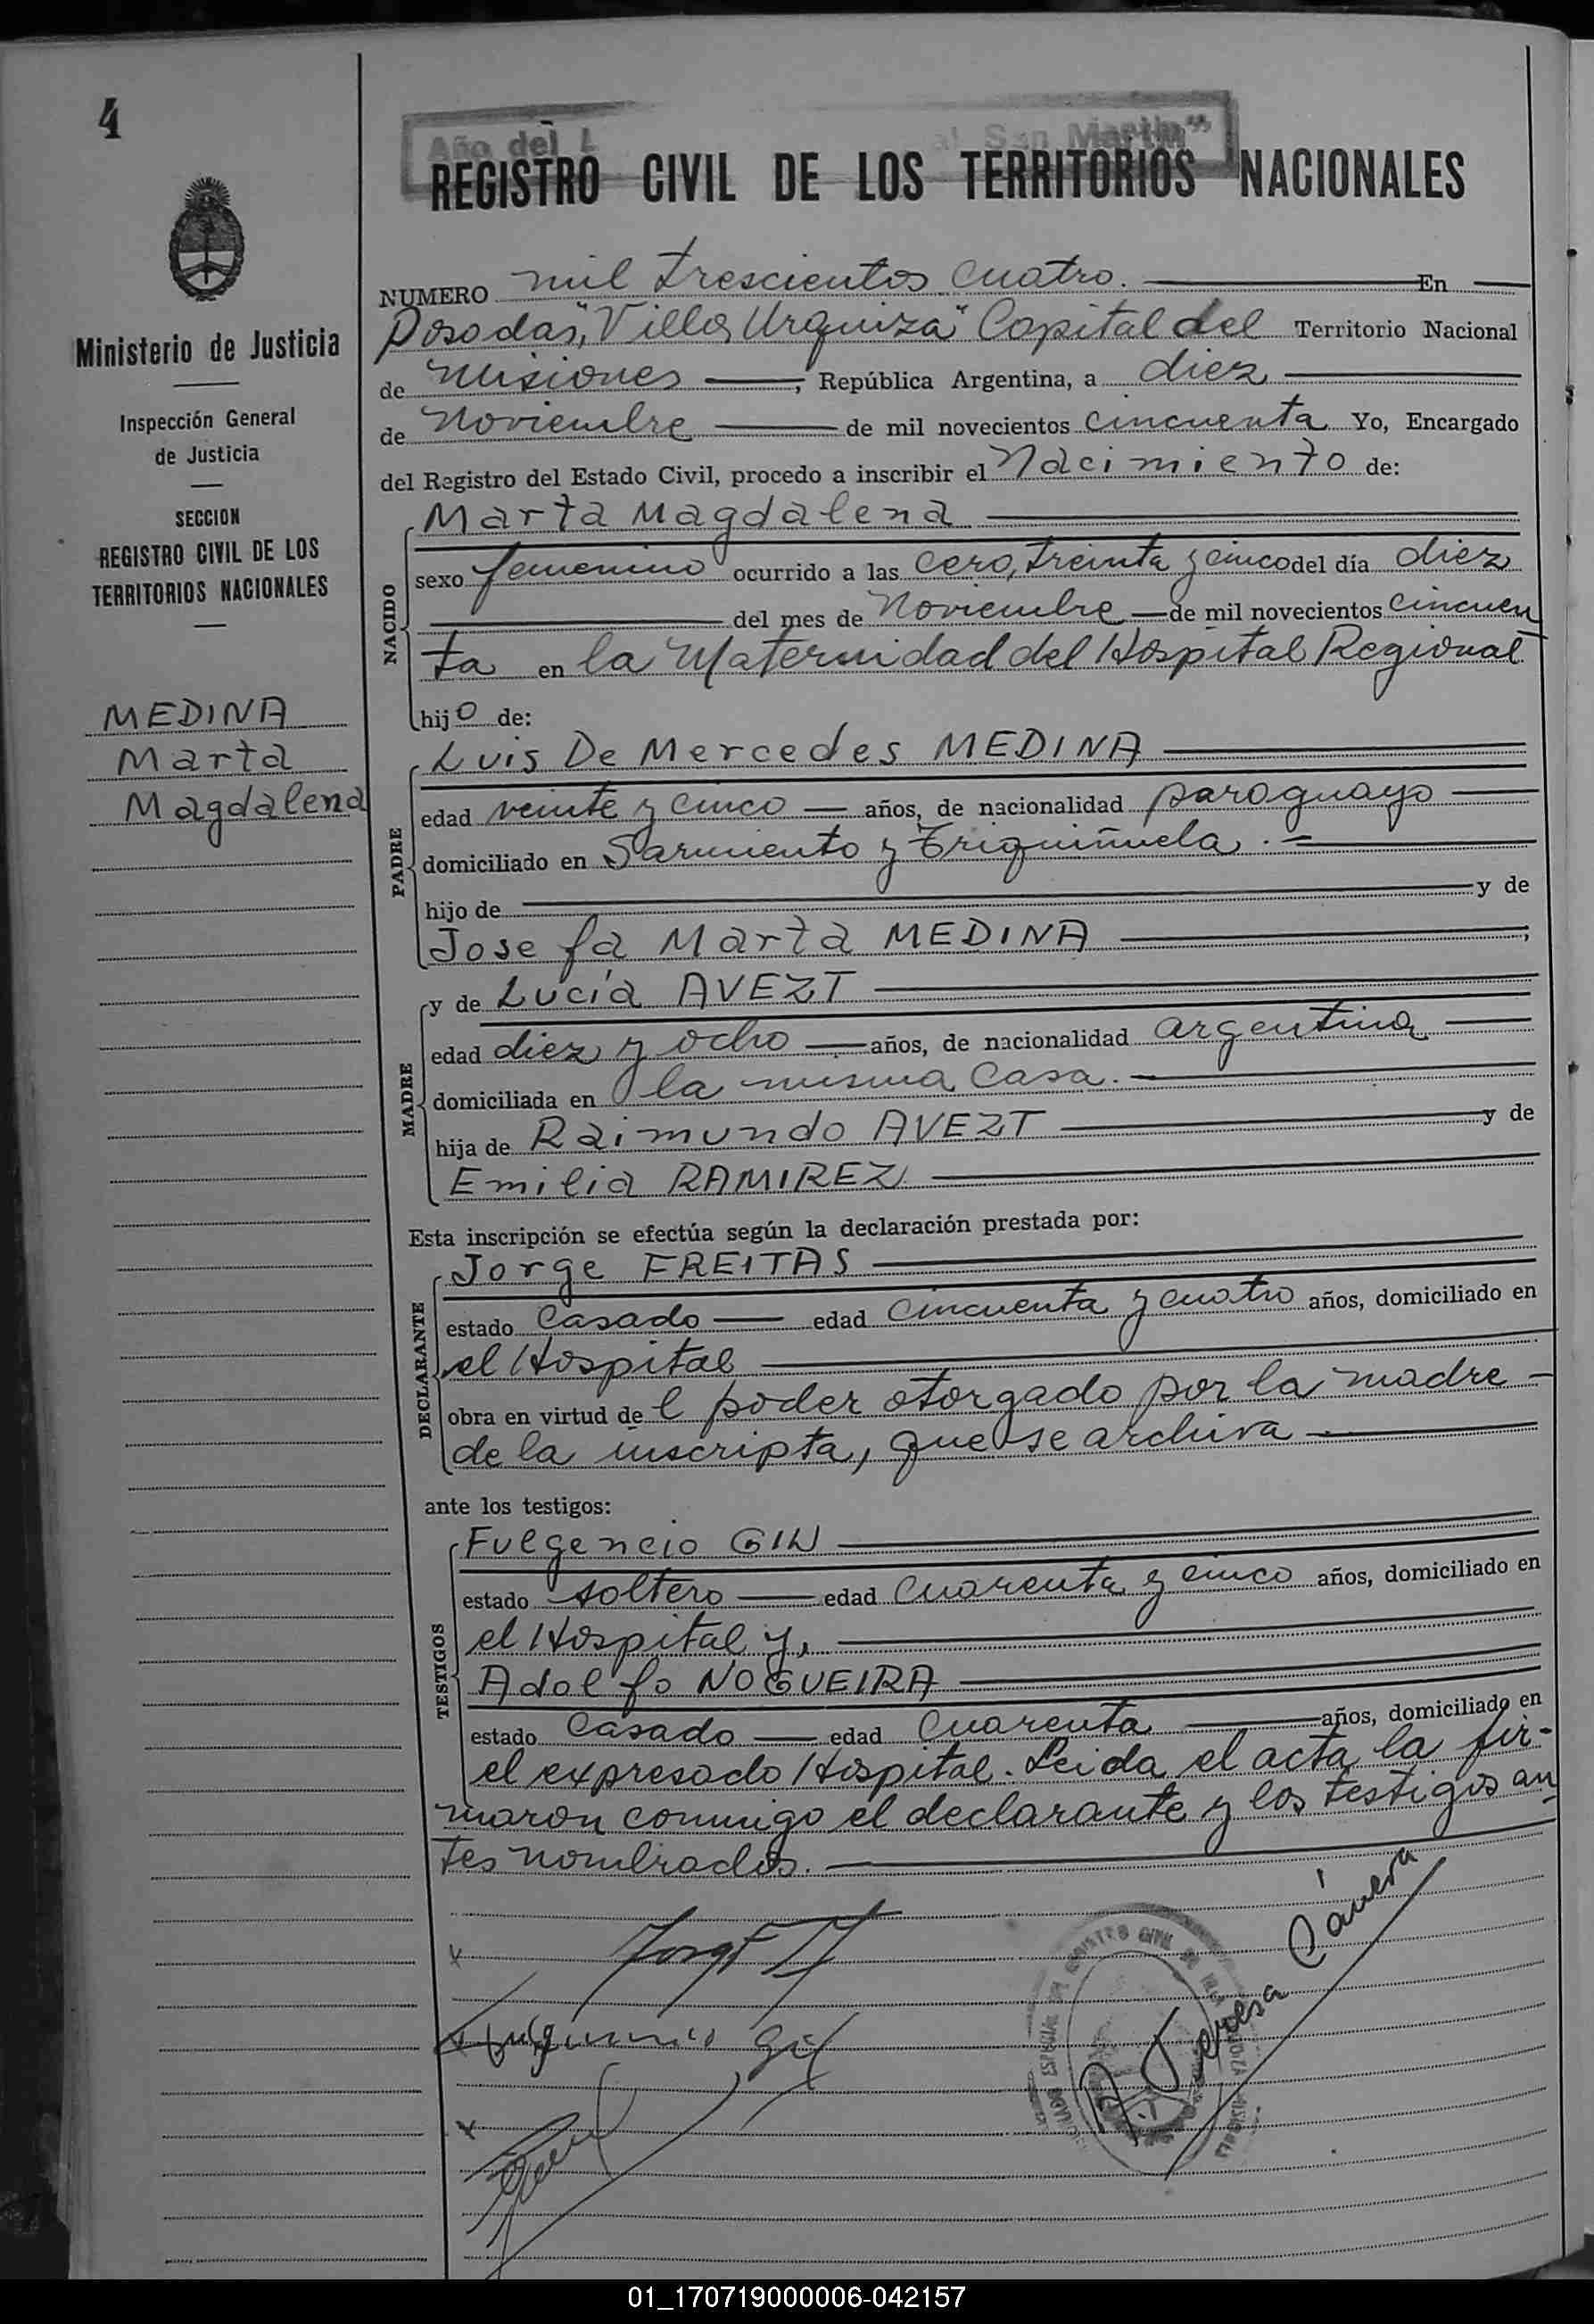 4
Año del L al San Martín"
REGISTRO CIVIL DE LOS TERRITORIOS NACIONALES
Ministerio de Justicia
Inspección General
de Justicia
SECCION
REGISTRO CIVIL DE LOS
TERRITORIOS NACIONALES
MEDINA
Marta
Magdalena
NUMERO mil trescientos cuatro. En
Posadas, "Villa Urquiza" Capital del Territorio Nacional
de Misiones, República Argentina, a diez
de Noviembre de mil novecientos cincuenta Yo, Encargado
del Registro del Estado Civil, procedo a inscribir el Nacimiento de:
NACIDO
Marta Magdalena
sexo femenino ocurrido a las cero, treinta y cinco del día diez
del mes de Noviembre de mil novecientos cincuen
ta en la Maternidad del Hospital Regional
hijo de:
PADRE
Luis De Mercedes MEDINA
edad veinte y cinco años, de nacionalidad paraguayo
domiciliado en Sarmiento y Triquiñuela.
hijo de y de
Josefa Marta MEDINA ,
MADRE
y de Lucía AVEZT
edad diez y ocho años, de nacionalidad argentina
domiciliada en la misma casa.
hija de Raimundo AVEZT y de
Emilia RAMIREZ
Esta inscripción se efectúa según la declaración prestada por:
DECLARANTE
Jorge FREITAS
estado casado edad cincuenta y cuatro años, domiciliado en
el Hospital
obra en virtud del poder otorgado por la madre
de la inscripta, que se archiva
ante los testigos:
TESTIGOS
Fulgencio GIL
estado soltero edad cuarenta y cinco años, domiciliado en
el Hospital y,
Adolfo NOGUEIRA
estado casado edad cuarenta años, domiciliado en
el expresado Hospital. Leida el acta la fir-
maron conmigo el declarante y los testigos an
tes nombrados.
Gil
Teresa
01_170719000006-042157